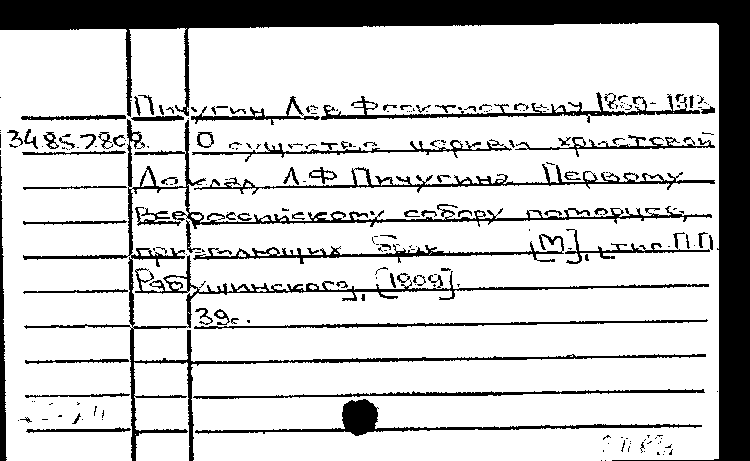 Пичугин, Лев Феоктистович, 1859-1912
3485.7808. О существе церкви христовой
Доклад Л.Ф Пичугина Первому
Всероссийскому собору поморцев,
приемлющих брак [М], [тип. П.П
Рябушинского], [1909].
39с.